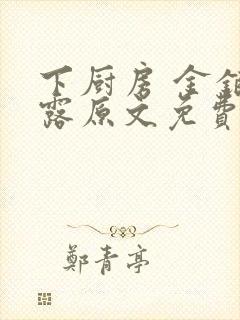 下厨房金銀
露原文免費
鄭青亭